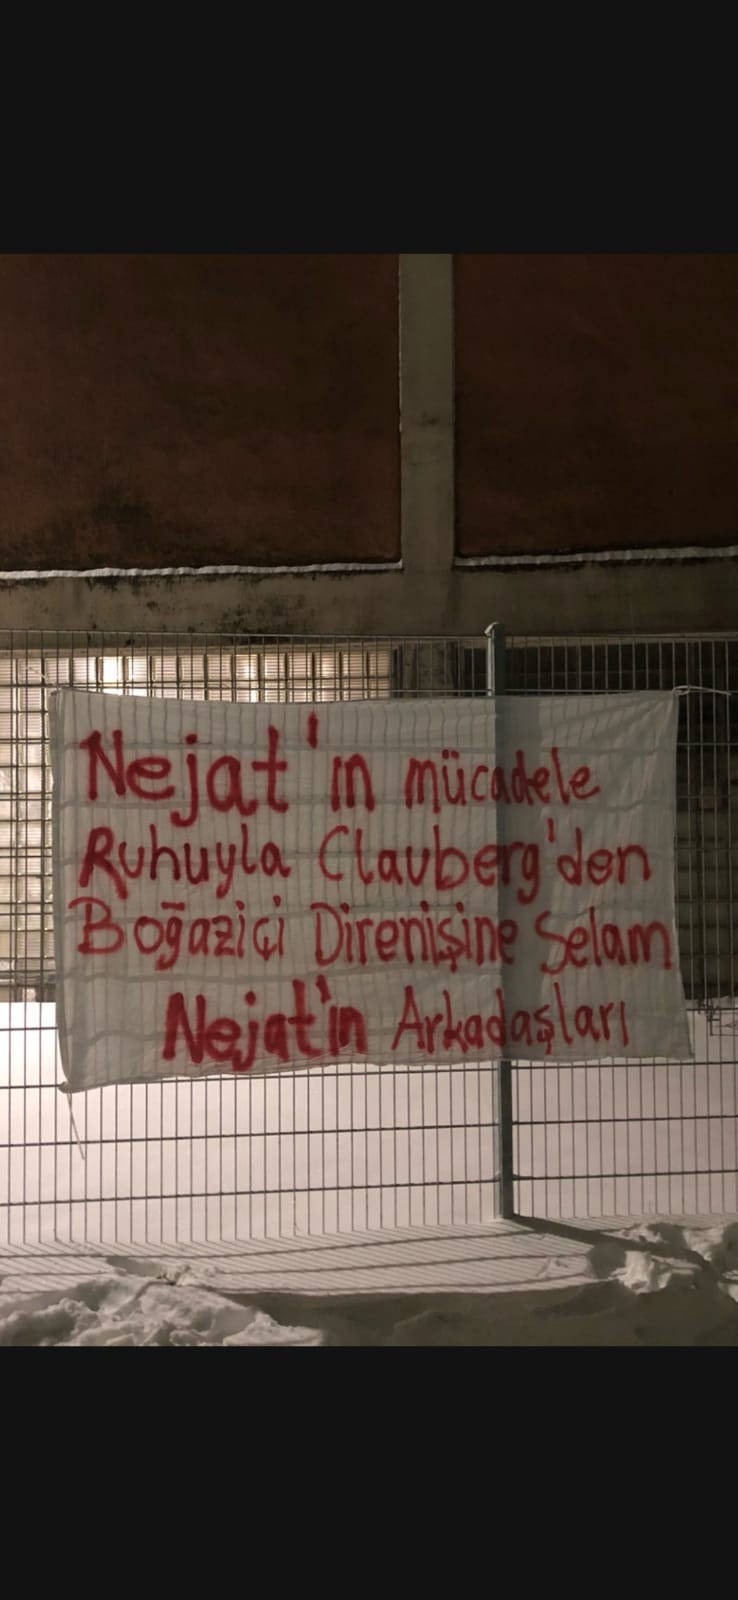 Nejat'ın mücadele
Ruhuyla Clauberg'den
Boğaziçi Direnişine Selam
Nejat'in Arkadaşları